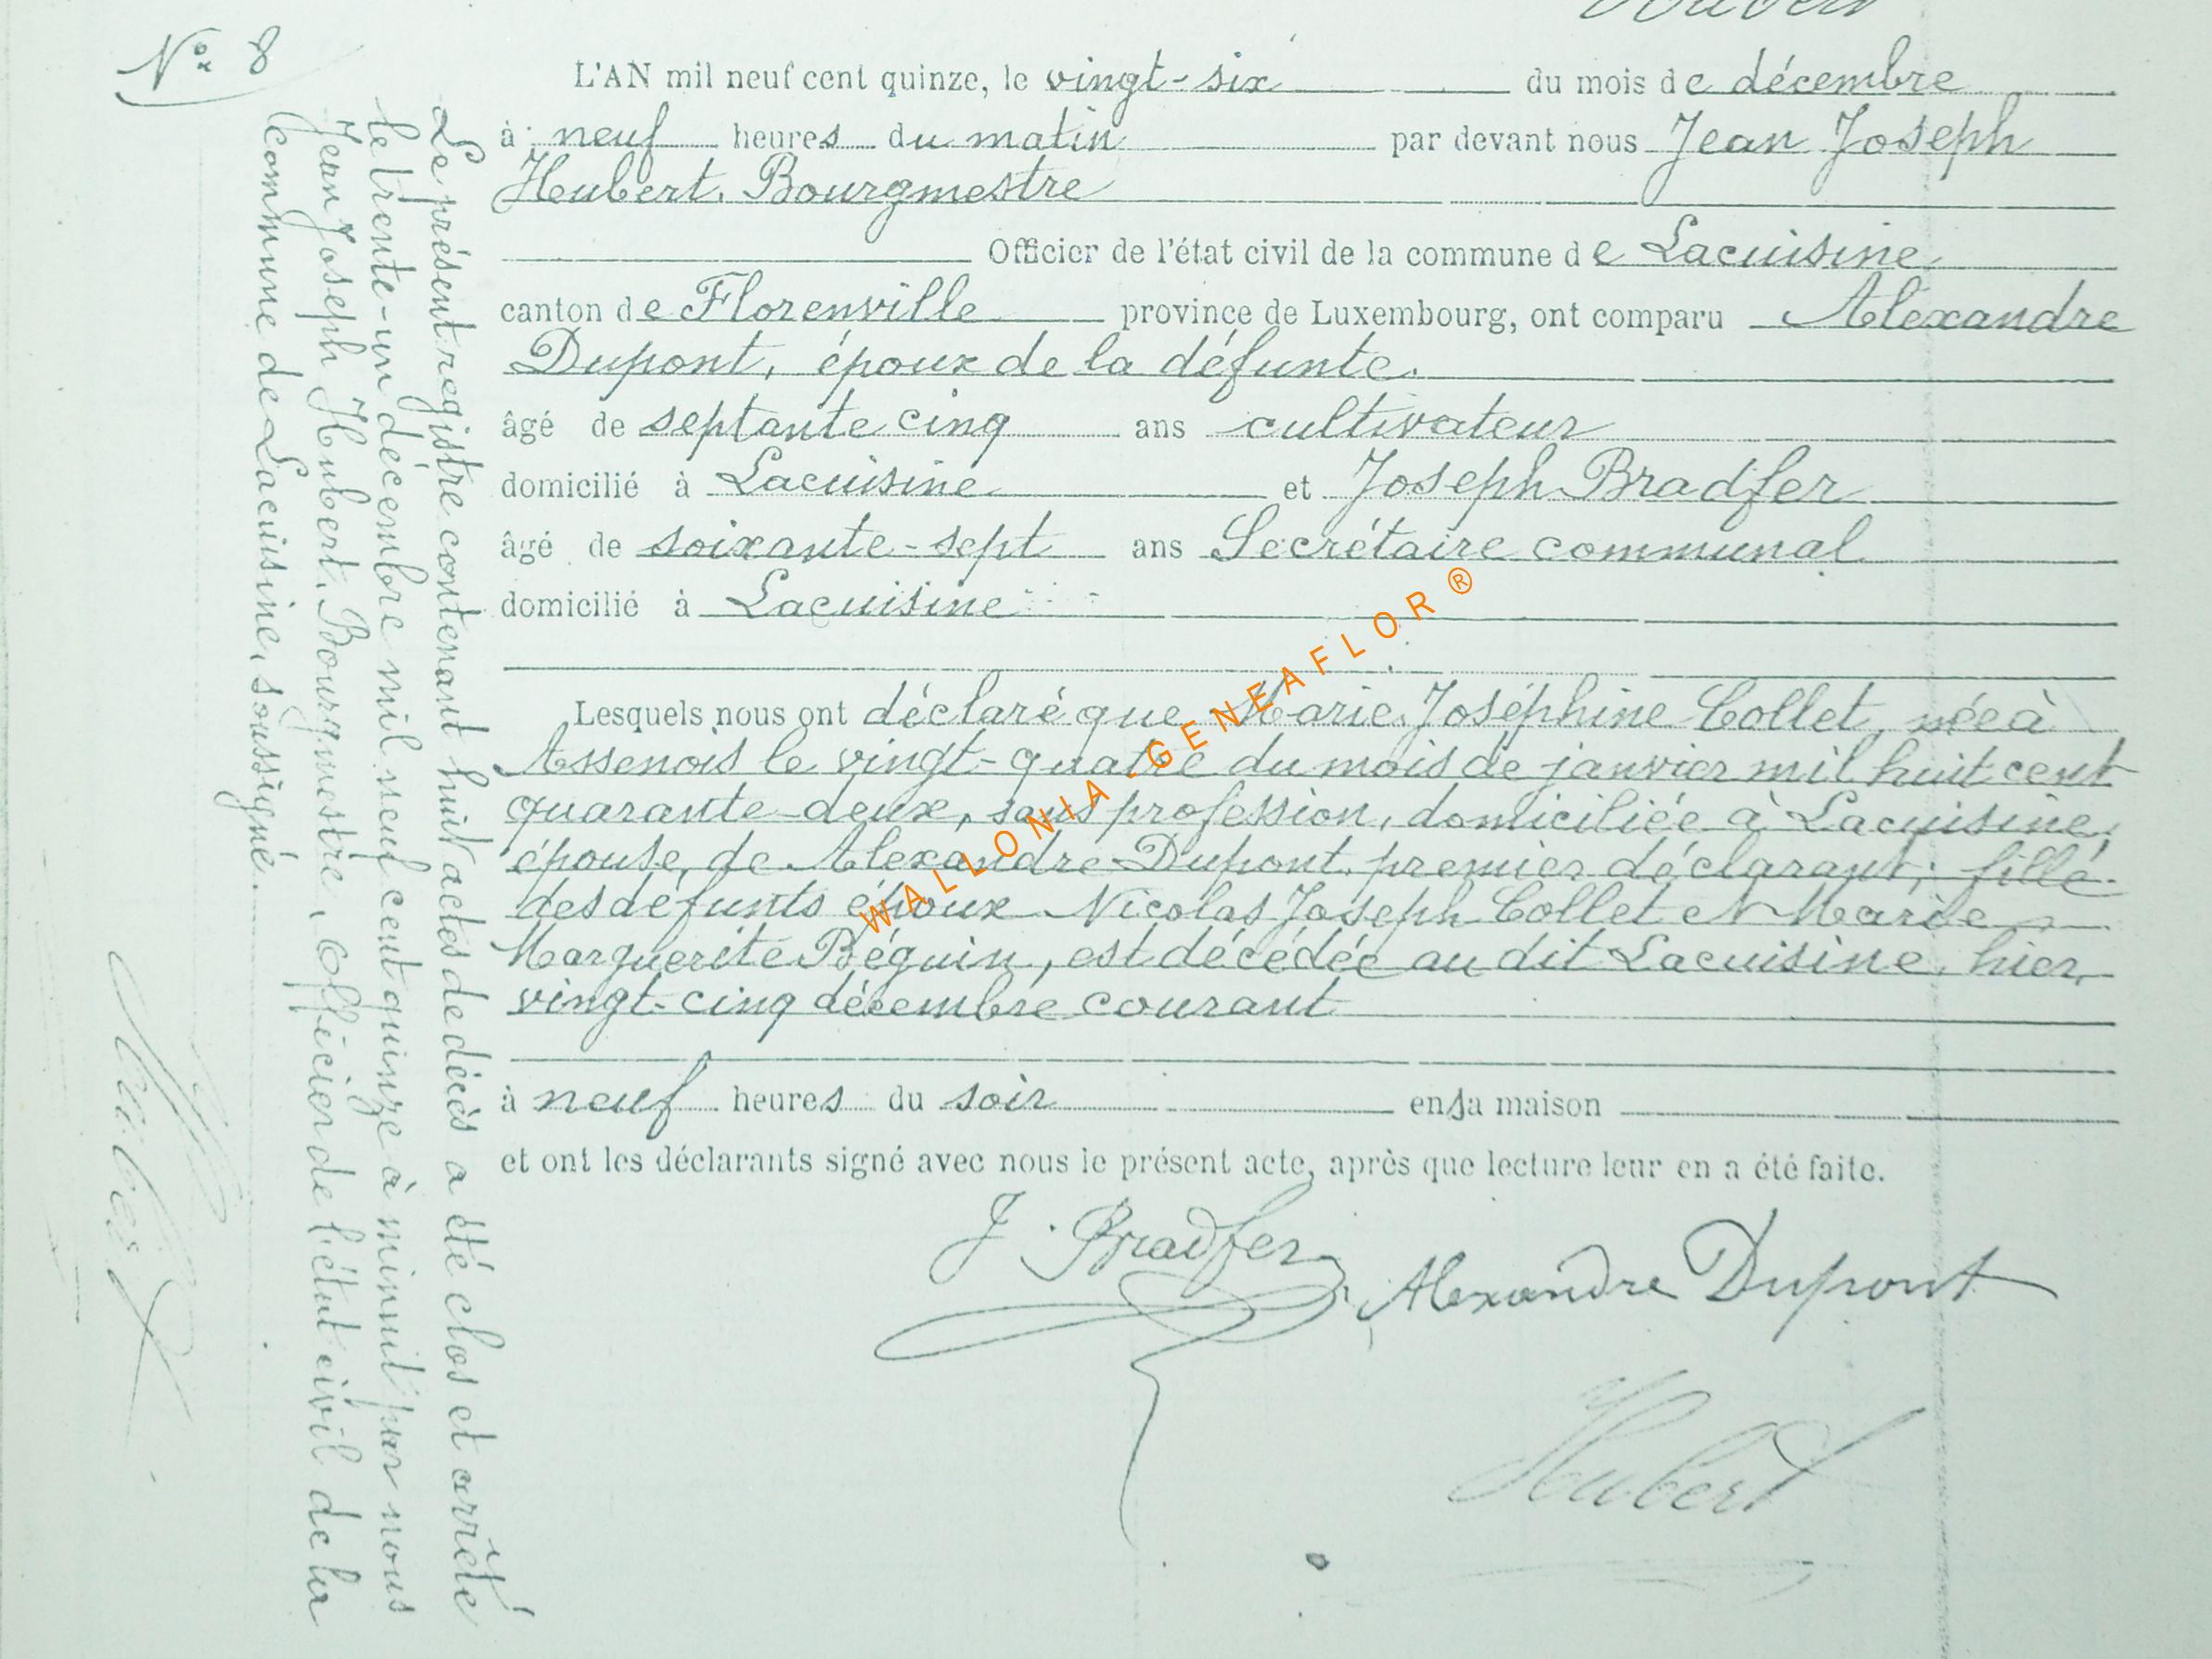 Hubert
Nº 8
L'AN mil neuf cent quinze, le vingt-six du mois de décembre
à neuf heures du matin par devant nous Jean Joseph
Hubert, Bourgmestre
Officier de l'état civil de la commune de Lacuisine
canton de Florenville province de Luxembourg, ont comparu Alexandre
Dupont, époux de la défunte.
âgé de septante cinq ans cultivateur
domicilié à Lacuisine et Joseph Bradfer
âgé de soixante-sept ans Secrétaire communal
domicilié à Lacuisine
Lesquels nous ont déclaré que Marie Joséphine Collet, née à
Assenois le vingt-quatre du mois de janvier mil huit cent
quarante-deux, sans profession, domiciliée à Lacuisine,
épouse de Alexandre Dupont, premier déclarant; fille
des défunts époux Nicolas Joseph Collet et Marie
Marguerite Béguin, est décédée au dit Lacuisine, hier,
vingt-cinq décembre courant
à neuf heures du soir en sa maison
et ont les déclarants signé avec nous le présent acte, après que lecture leur en a été faite.
J. Bradfer
Alexandre Dupont
Hubert
Le présent registre contenant huit actes de décès a été clos et arrêté
le trente-un décembre mil neuf cent quinze à minuit par nous
Jean Joseph Hubert, Bourgmestre, Officier de l'état civil de la
commune de Lacuisine, soussigné.
Hubert
WALLONIA GENEAFLOR ®